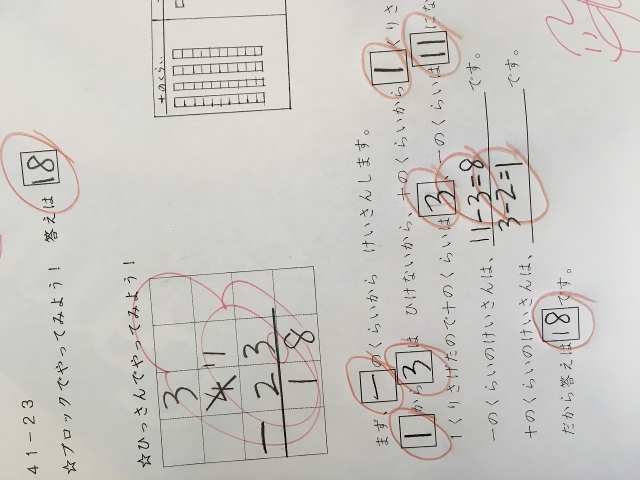 41-23
☆ブロックでやってみよう! 答えは 18
十のくらい
☆ひっさんでやってみよう!
3
4 11
- 2 3
1 8
まず、一のくらいから けいさんします。
1から3は ひけないから、十のくらいから1くりさ
1くりさげたので十のくらいは3、一のくらいは11にな
一のくらいのけいさんは、11-3=8です。
十のくらいのけいさんは、3-2=1です。
だから答えは18です。